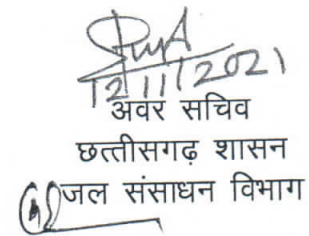 12/11/2021
अवर सचिव
छत्तीसगढ़ शासन
जल संसाधन विभाग